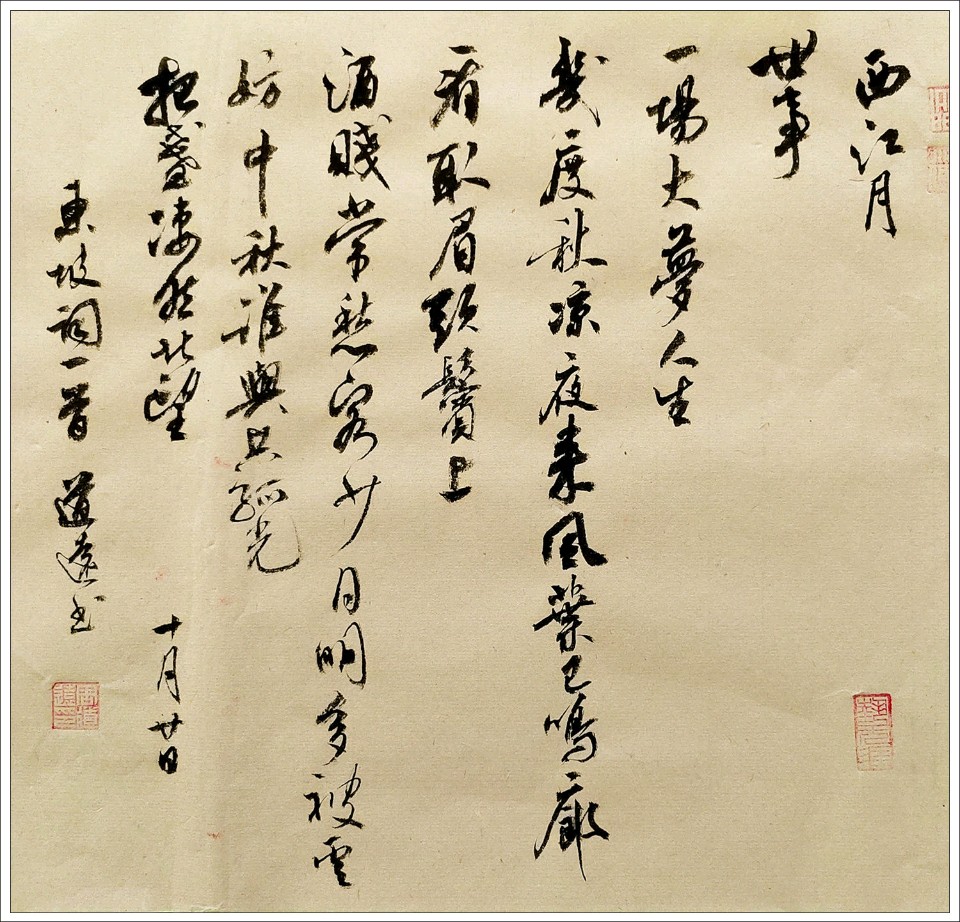 西江月
世事
一場大夢人生
幾度秋凉夜来風葉已鳴廊
看取眉頭鬢上
酒賤常愁客少月明多被雲
妨中秋誰與共孤光
把盞凄然北望
十月廿日
東坡詞一首 道遠书